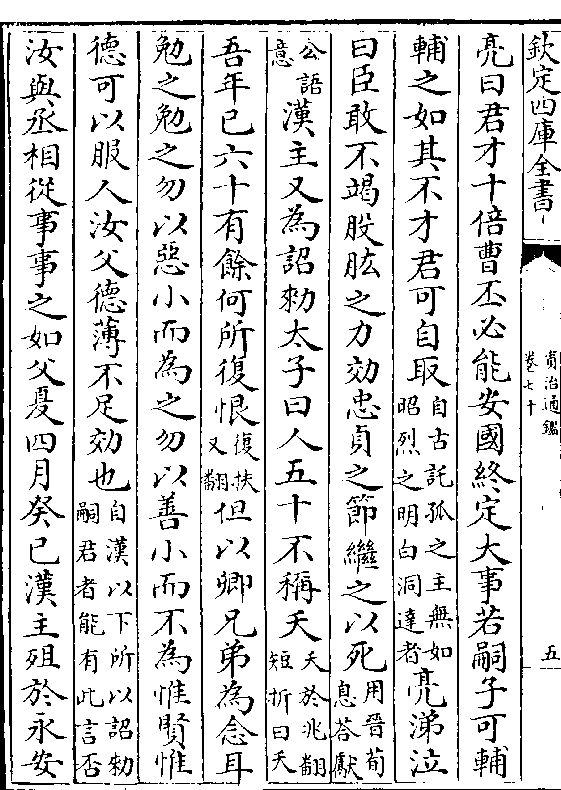 欽定四庫全書
資治通鑑
卷七十
五
亮曰君才十倍曹丕必能安國終定大事若嗣子可輔
輔之如其不才君可自取自古託孤之主無如昭烈之明白洞達者亮涕泣
曰臣敢不竭股肱之力効忠貞之節繼之以死用晉荀息荅獻
公語意漢主又為詔勑太子曰人五十不稱夭夭於兆翻短折曰夭
吾年已六十有餘何所復恨復扶又翻但以卿兄弟為念耳
勉之勉之勿以惡小而為之勿以善小而不為惟賢惟
德可以服人汝父德薄不足効也自漢以下所以詔勑嗣君者能有此言否
汝與丞相從事事之如父夏四月癸巳漢主殂於永安